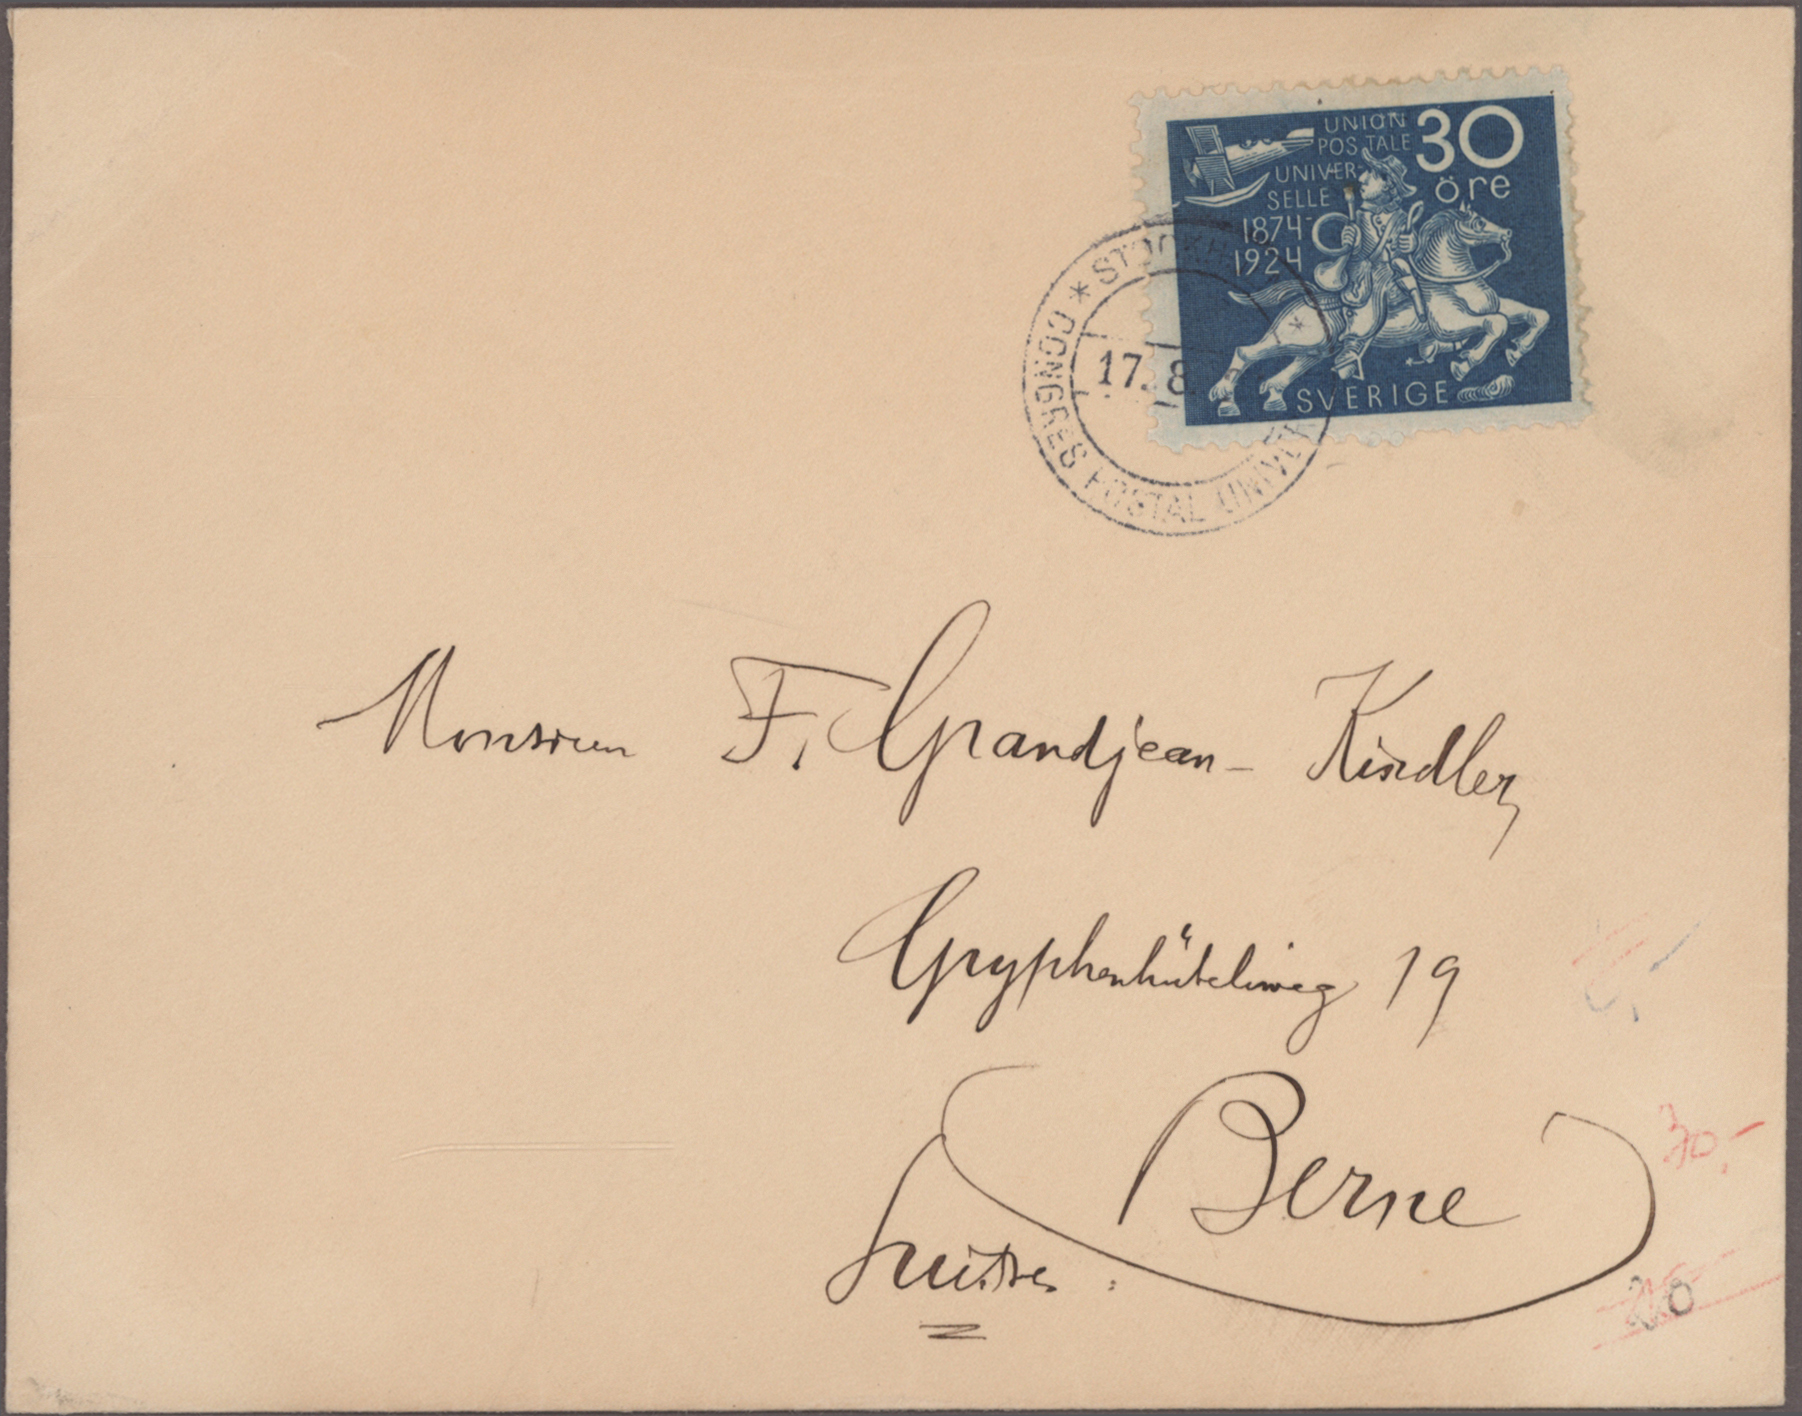 UNION
POSTALE
UNIVER-
SELLE
1874-
1924
30
öre
SVERIGE
* STOCKH
17. 8
CONGRES POSTAL UNIVE
Monsieur F. Grandjean-Kindler,
Gryphenhübeliweg 19
Berne
Suisse
30.-